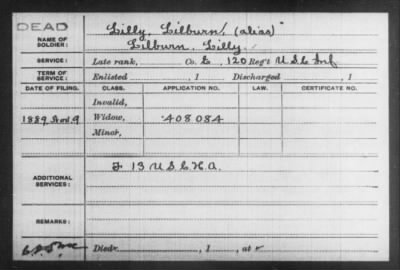 DEAD
NAME OF SOLDIER: Lilly, Lilburn, (alias)"
Lilburn, Lilly.
SERVICE: Late rank, Co. E, 120 Reg't U.S.C Inf
TERM OF SERVICE: Enlisted , 1 Discharged , 1
DATE OF FILING. CLASS. APPLICATION NO. LAW. CERTIFICATE NO.
Invalid,
1889 9 Widow, 408084
Minor,
ADDITIONAL SERVICES: 13 U.S.C.H.A.
REMARKS:
Died , 1 , at